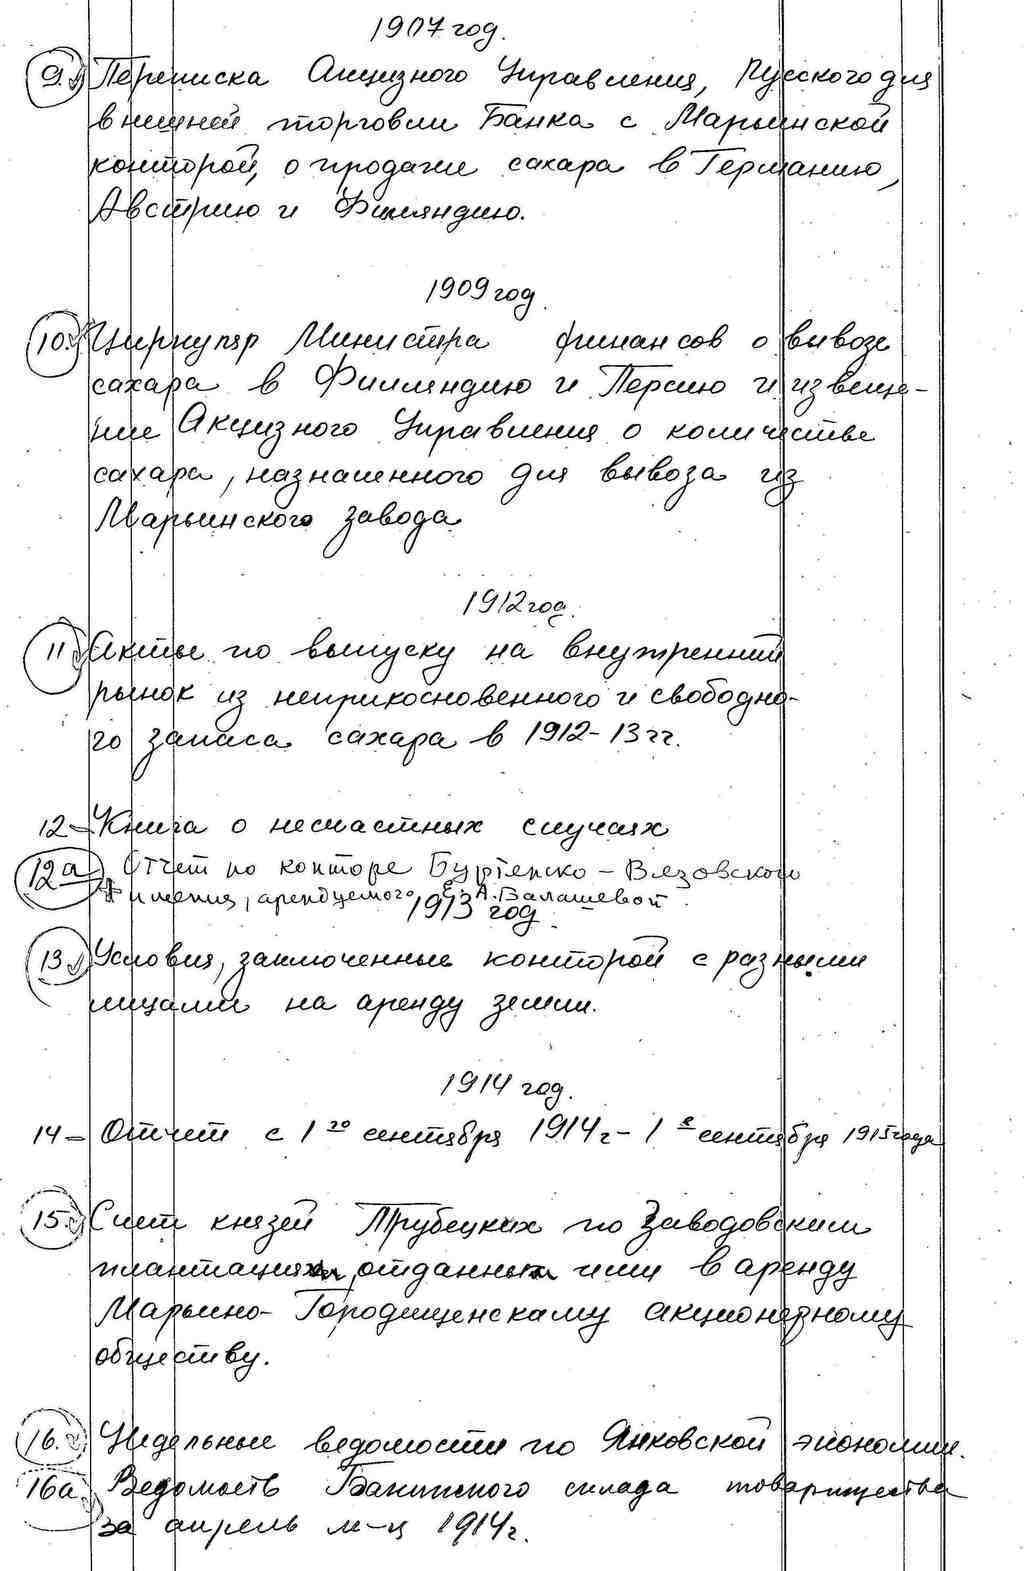 1907 год.
9. Переписка Акцизного Управления, Русского для
внешней торговли Банка с Марьинской
конторой, о продаже сахара в Германию,
Австрию и Финляндию.
1909 год.
10. Циркуляр Министра финансов о вывозе
сахара в Финляндию и Персию и извеще-
ние Акцизного Управления о количестве
сахара, назначенного для вывоза из
Марьинского завода
1912 год.
11. Акты по выпуску на внутренний
рынок из неприкосновенного и свободно-
го запаса сахара в 1912-13 гг.
12 - Книга о несчастных случаях
12а Отчет по конторе Буртянско - Вязовского
имения, арендуемого Е. А. Балашевой
1913 год.
13. Условия, заключенные конторой с разными
лицами на аренду земли.
1914 год.
14 - Отчет с 1го сентября 1914 г - 1е сентября 1915 года
15. Счет князей Трубецких по Заводовским
плантациям, отданным ими в аренду
Марьино- Городищенскаму акционерному
обществу.
16. Недельные ведомости по Янковской экономии.
16а. Ведомость Бакинского склада товарищества
за апрель м-ц 1914 г.